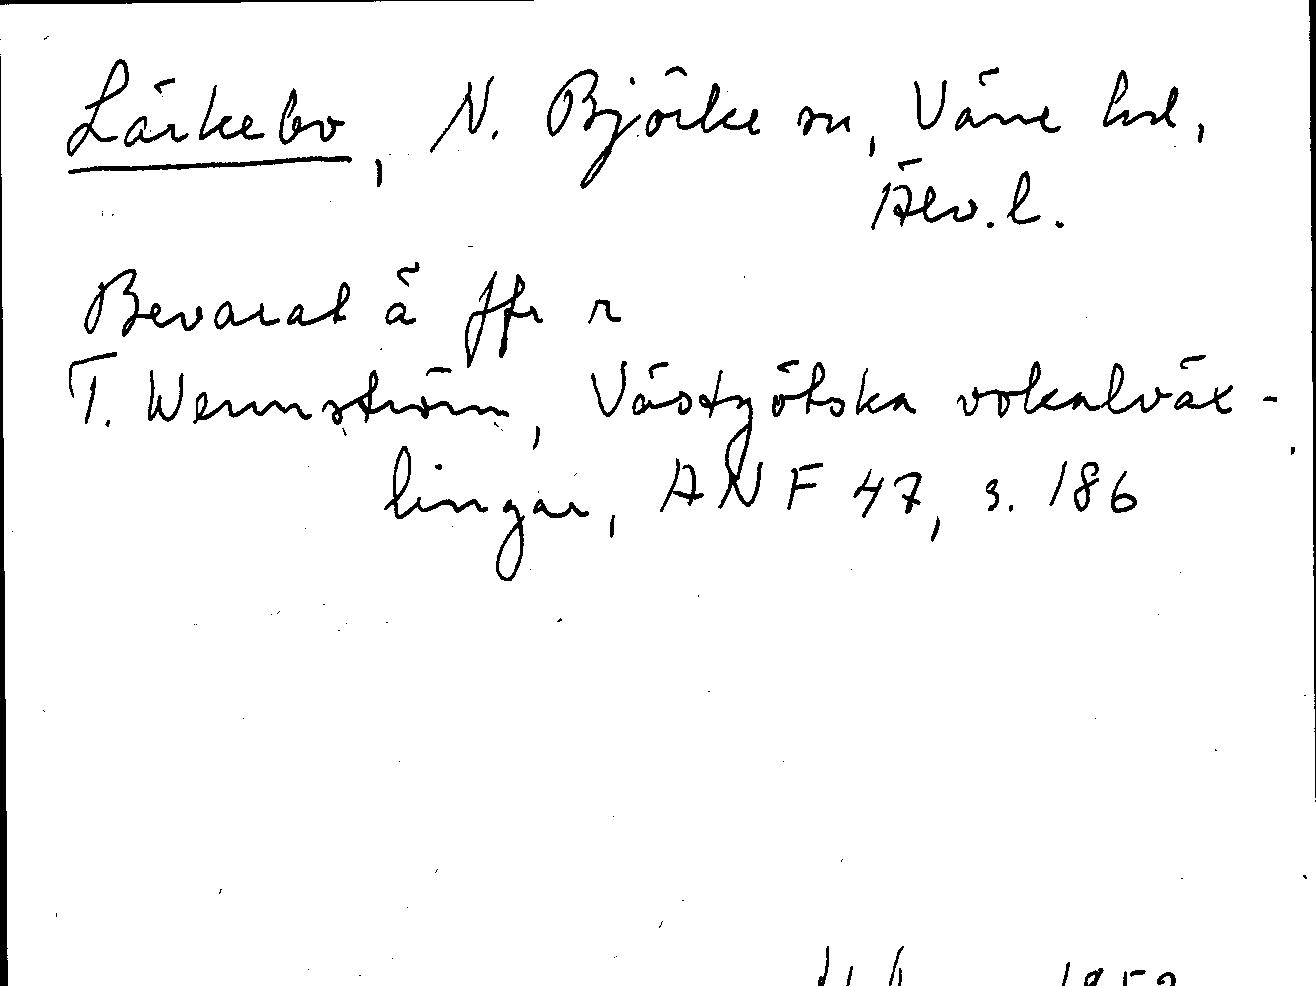 Lärkebo, N. Björke sn, Väne hd,
Älv. l.
Bevarat ä ffr r
T. Wennström, Västgötska vokalväx-
lingar, ANF 47, s. 186